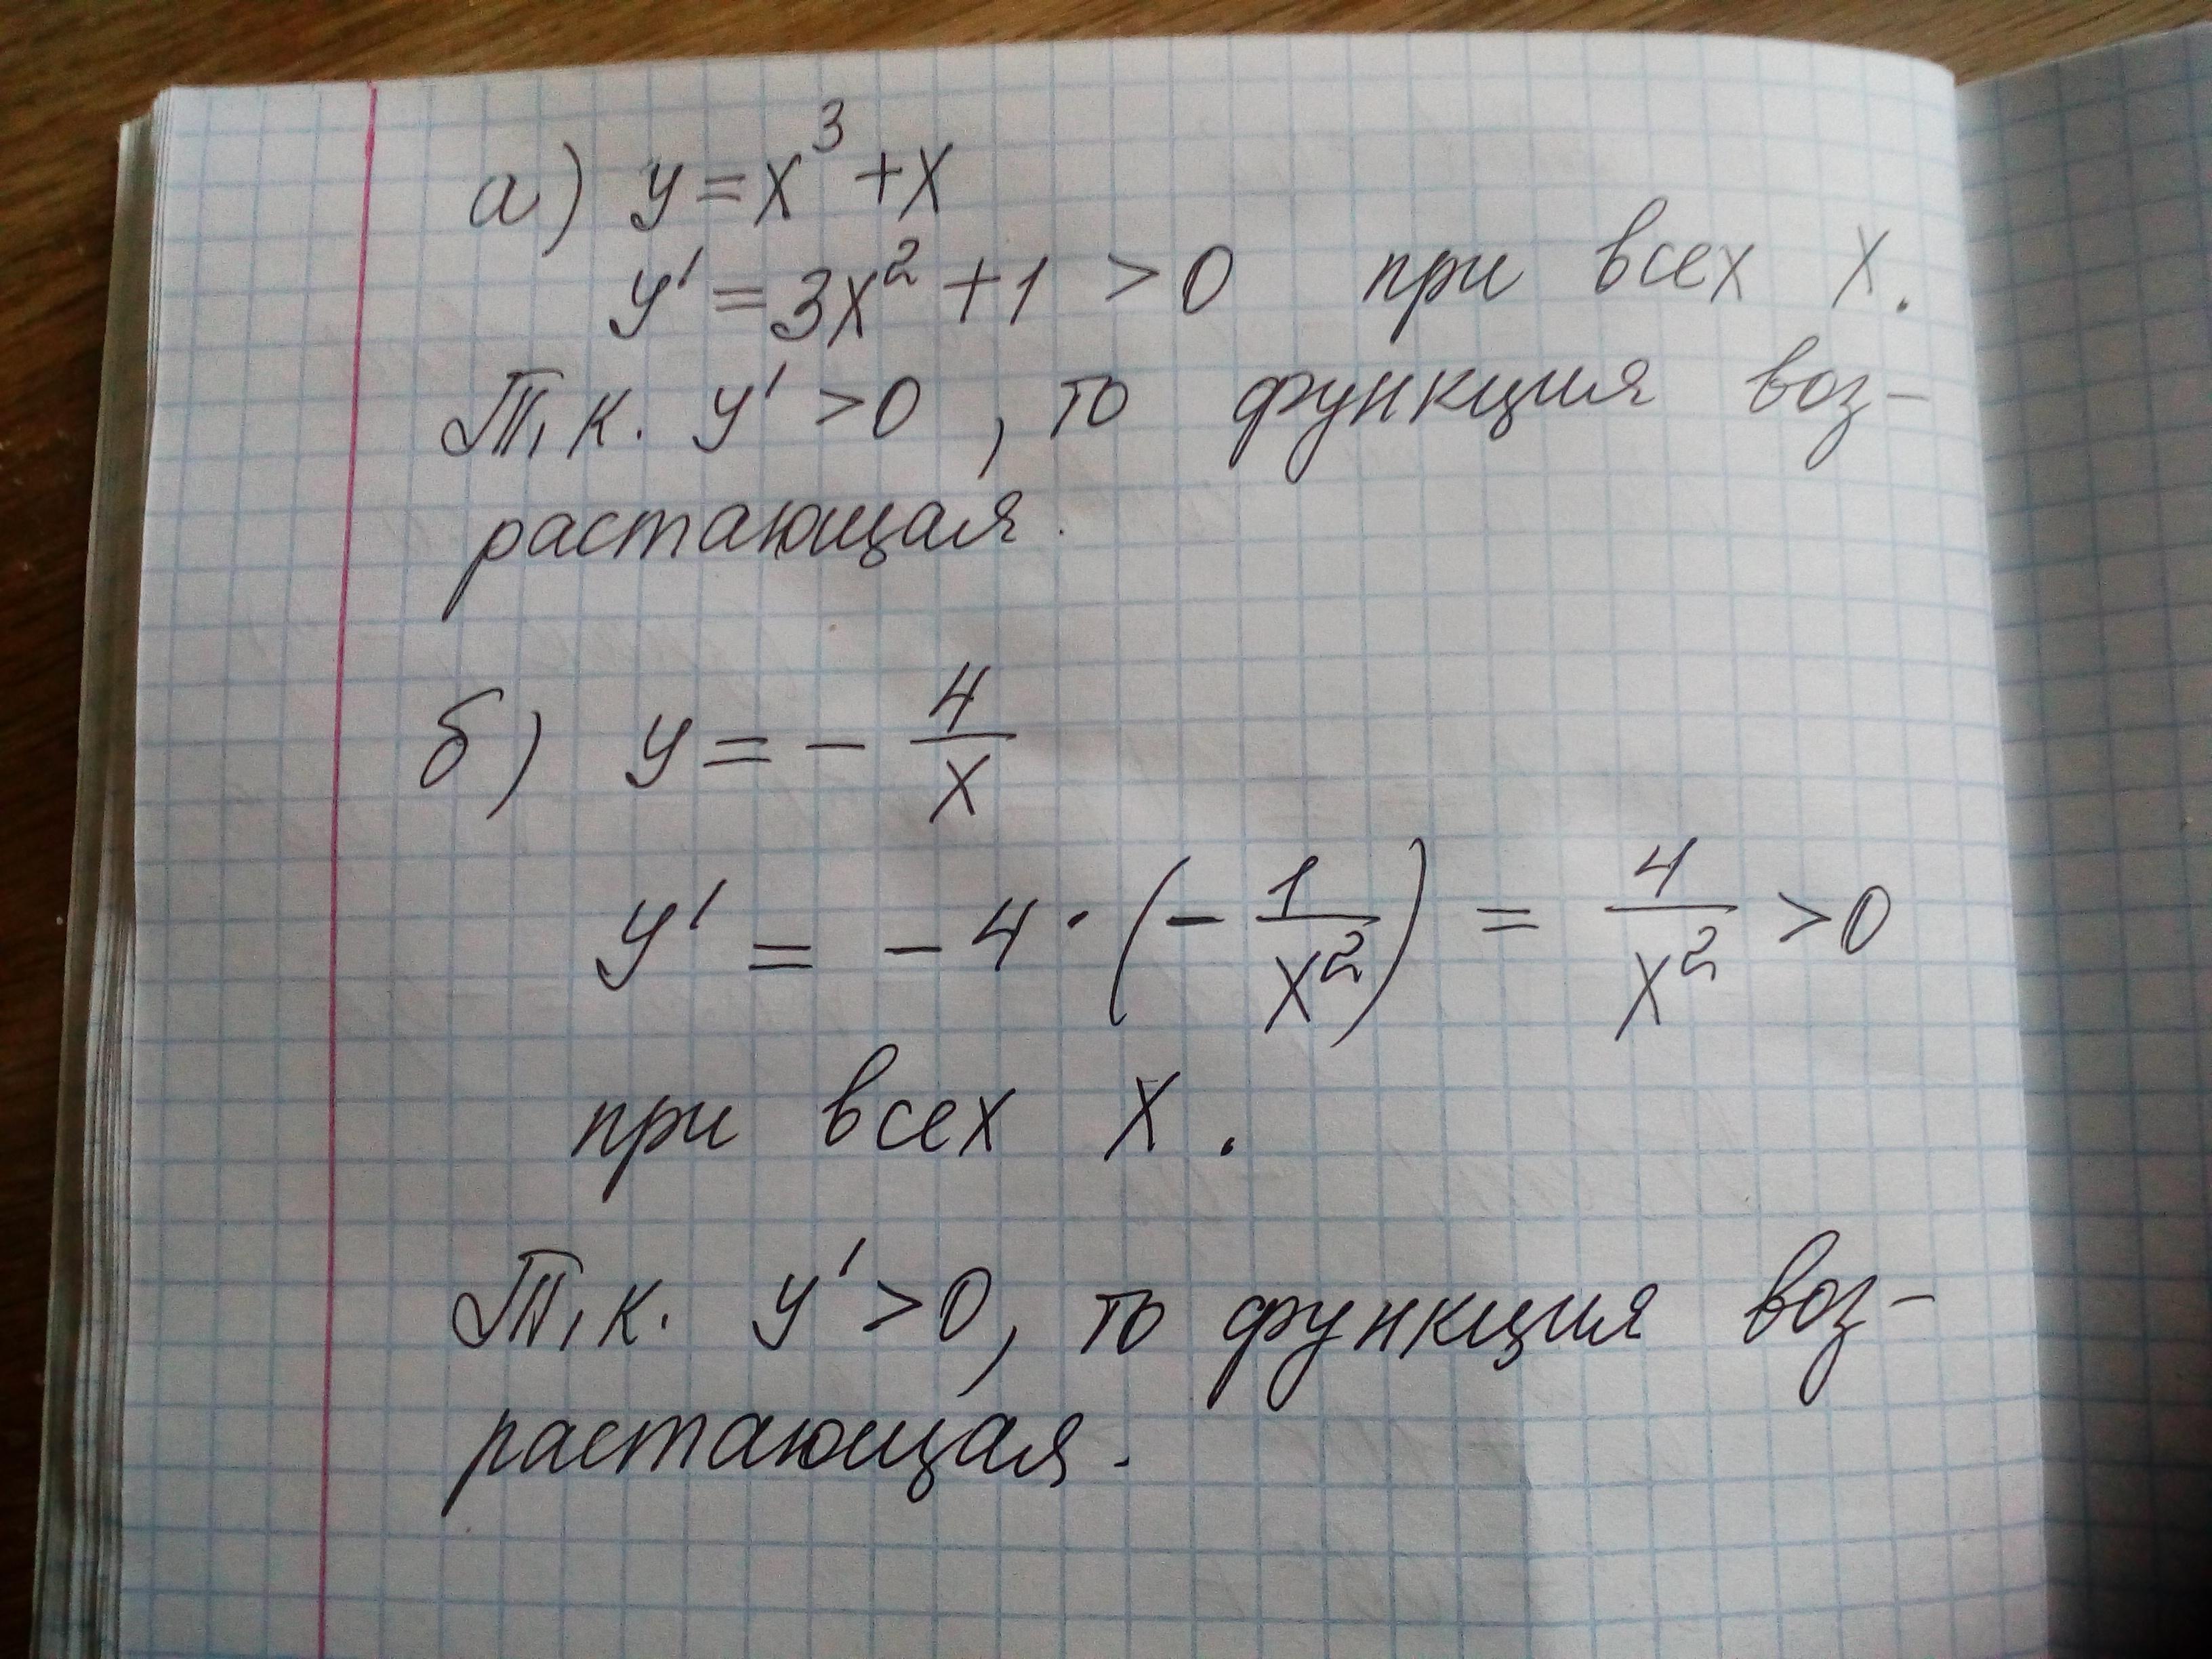 а) y=x³+x
y'=3x²+1 >0 при всех x.
Т,к. y'>0, то функция воз-
растающая.
б) y=-4/x
y' = -4·(-1/x²) = 4/x² >0
при всех x.
Т,к. y'>0, то функция воз-
растающая.